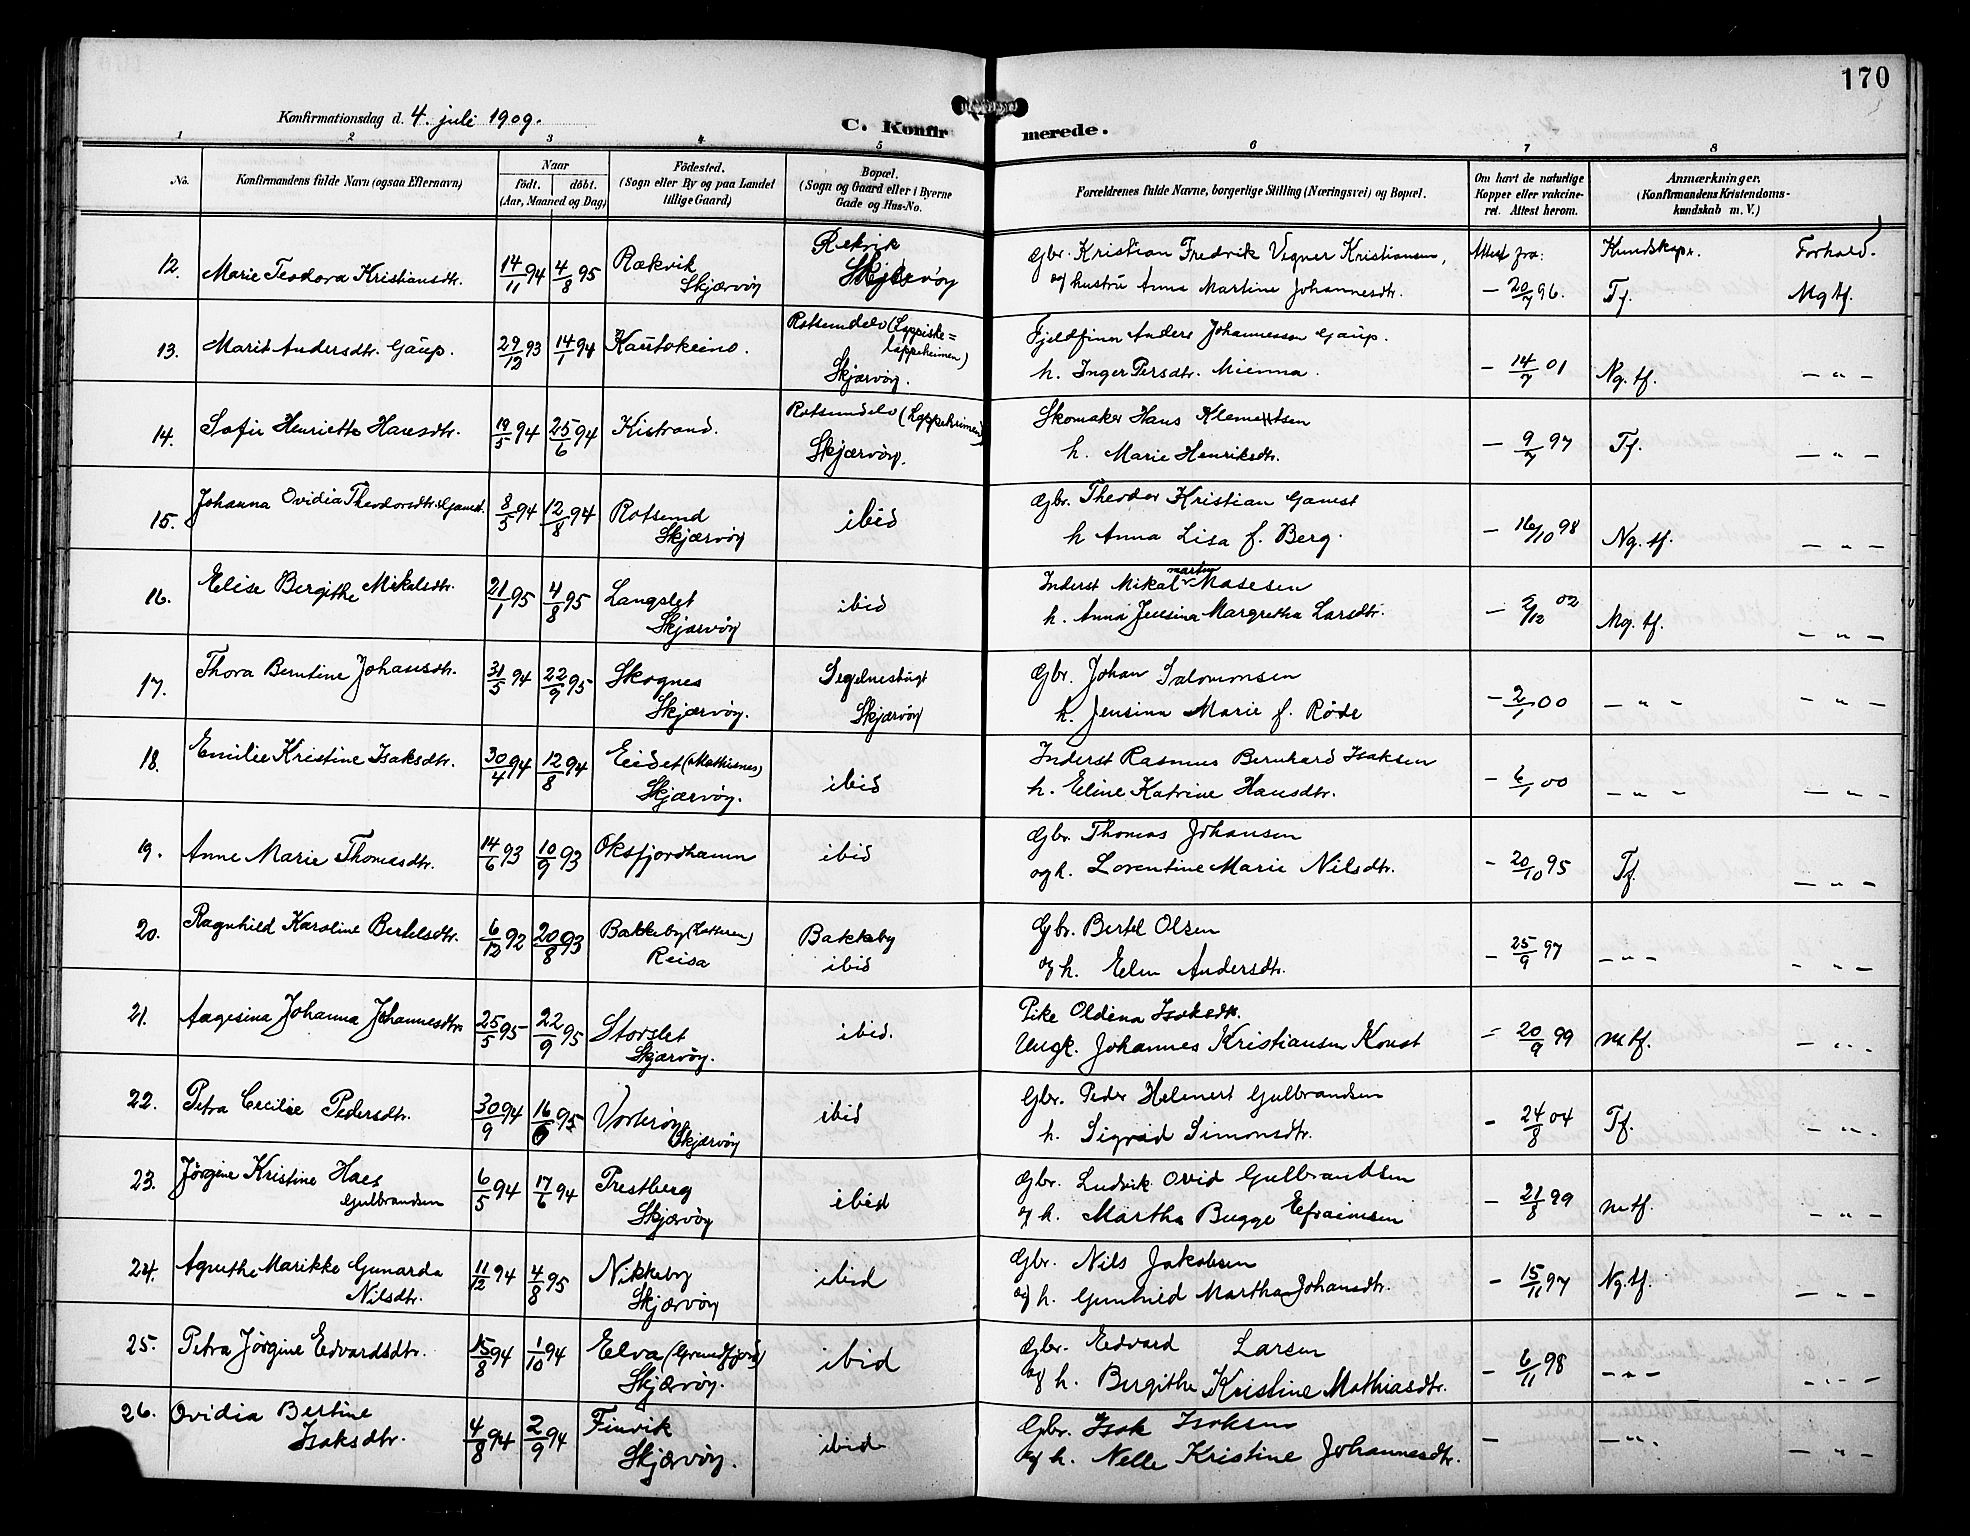 170
Konfirmationsdag d. 4. juli 1909.
C. Konfirmerede.
1 2 3 4 5 6 7 8
No. Konfirmandens fulde Navn (ogsaa Efternavn) Naar født. døbt. (Aar, Maaned og Dag) Fødested. (Sogn eller By og paa Landet tillige Gaard) Bopæl. (Sogn og Gaard eller i Byerne Gade og Hus-No. Forældrenes fulde Navne, borgerlige Stilling (Næringsvei) og Bopæl. Om havt de naturlige Kopper eller vakcineret. Attest herom. Anmærkninger. (Konfirmandens Kristendomskundskab m. V.)
12. Marie Teodora Kristiansdtr. 14/11 94 4/8 95 Rækvik Rekvik Gbr. Kristian Fredrik Vigner Kristiansen, Attest fra: Kundskap. Forhold.
Skjærvøy Skjærvøy og hustru Anna Martine Johannesdtr. – 20/7 96. Tf. Mg tf.
13. Marit Andersdtr. Gaup. 29/12 93 14/1 94 Kautokeino. Rotsundelv (Lyppiske= Fjeldfinn Anders Johannessen Gaup.
lappeheimen) Skjærvøy. h. Inger Persdtr. Mienna. – 14/7 01 Ng. tf. – „ –
14. Sofie Henriette Hansdtr. 19/5 94 25/6 94 Kistrand. Rotsundelv (Lappeheimen) Skomaker Hans Klemetsen
Skjærvøy. h. Marie Henriksdtr. – 9/7 97 Tf. – „ –
15. Johanna Ovidia Theodorsdtr. Gamst. 8/5 94 12/8 94 Rotsund ibid Gbr. Theodor Kristian Gamst
Skjærvøy h Anna Lisa f. Berg. – 16/10 98 Ng. tf. – „ –
16. Elise Bergithe Mikalsdtr. 21/1 95 4/8 95 Langslet ibid Inderst Mikal martin Mosesen
Skjærvøy h. Anna Jensina Margretha Larsdtr. – 2/12 02 Mg. tf. – „ –
17. Thora Berntine Johansdtr. 31/5 94 22/9 95 Skognes Segelnesbugt Gbr. Johan Salomonsen
Skjærvøy. Skjærvøy h. Jensina Marie f. Røde – 2/1 00 – „ – – „ –
18. Emilie Kristine Isaksdtr. 30/4 94 12/8 94 Eidet (Mathisnes) ibid Inderst Rasmus Bernhard Isaksen
Skjærvøy. h. Eline Katrine Hansdtr. – 6/1 00 – „ – – „ –
19. Anne Marie Thomasdtr. 14/6 93 10/9 93 Oksfjordhamn ibid Gbr. Thomas Johansen
og h. Lorentine Marie Nilsdtr. – 20/10 95 Tf. – „ –
20. Ragnhild Karoline Bertelsdtr. 6/12 92 20/8 93 Bakkeby Bakkeby Gbr. Bertel Olsen
Reisa ibid og h. Elen Andersdtr. – 25/9 97 – „ – – „ –
21. Aagesina Johanna Johannesdtr 25/5 95 22/9 95 Storslet ibid. Pike Oldena Isaksdtr.
Skjærvøy. Ungk. Johannes Kristiansen Konst – 20/9 99 mtf. – „ –
22. Petra Cecilie Pedersdtr. 30/9 94 16/6 95 Vorterøy ibid Gbr. Peder Helmert Gulbrandsen
Skjærvøy h. Sigrid Simonsdtr. – 24/8 04 Tf. – „ –
23. Jørgine Kristine Haes 6/5 94 17/6 94 Prestberg ibid Gbr. Ludvik Ovid Gulbrandsen
Gulbrandsen Skjærvøy og h. Martha Bugge Efraimsen – 21/8 99 mtf. – „ –
24. Agnethe Marikke Gunarda 11/12 94 4/8 95 Nikkeby ibid Gbr. Nils Jakobsen
Nilsdtr. Skjærvøy og h. Gunhild Martha Johansdtr. – 15/11 97 Ng. tf. – „ –
25. Petra Jørgine Edvardsdtr. 15/8 94 1/10 94 Elva (Grundfjord) ibid Gbr. Edvard Larsen
Skjærvøy. og h. Birgithe Kristine Mathiasdtr. – 6/11 98 – „ – – „ –
26. Ovidia Bertine 4/8 94 2/9 94 Finvik ibid Gbr. Isak Isaksen
Isaksdtr. Skjærvøy. og h. Nelle Kristine Johannesdtr. – – „ – – „ –